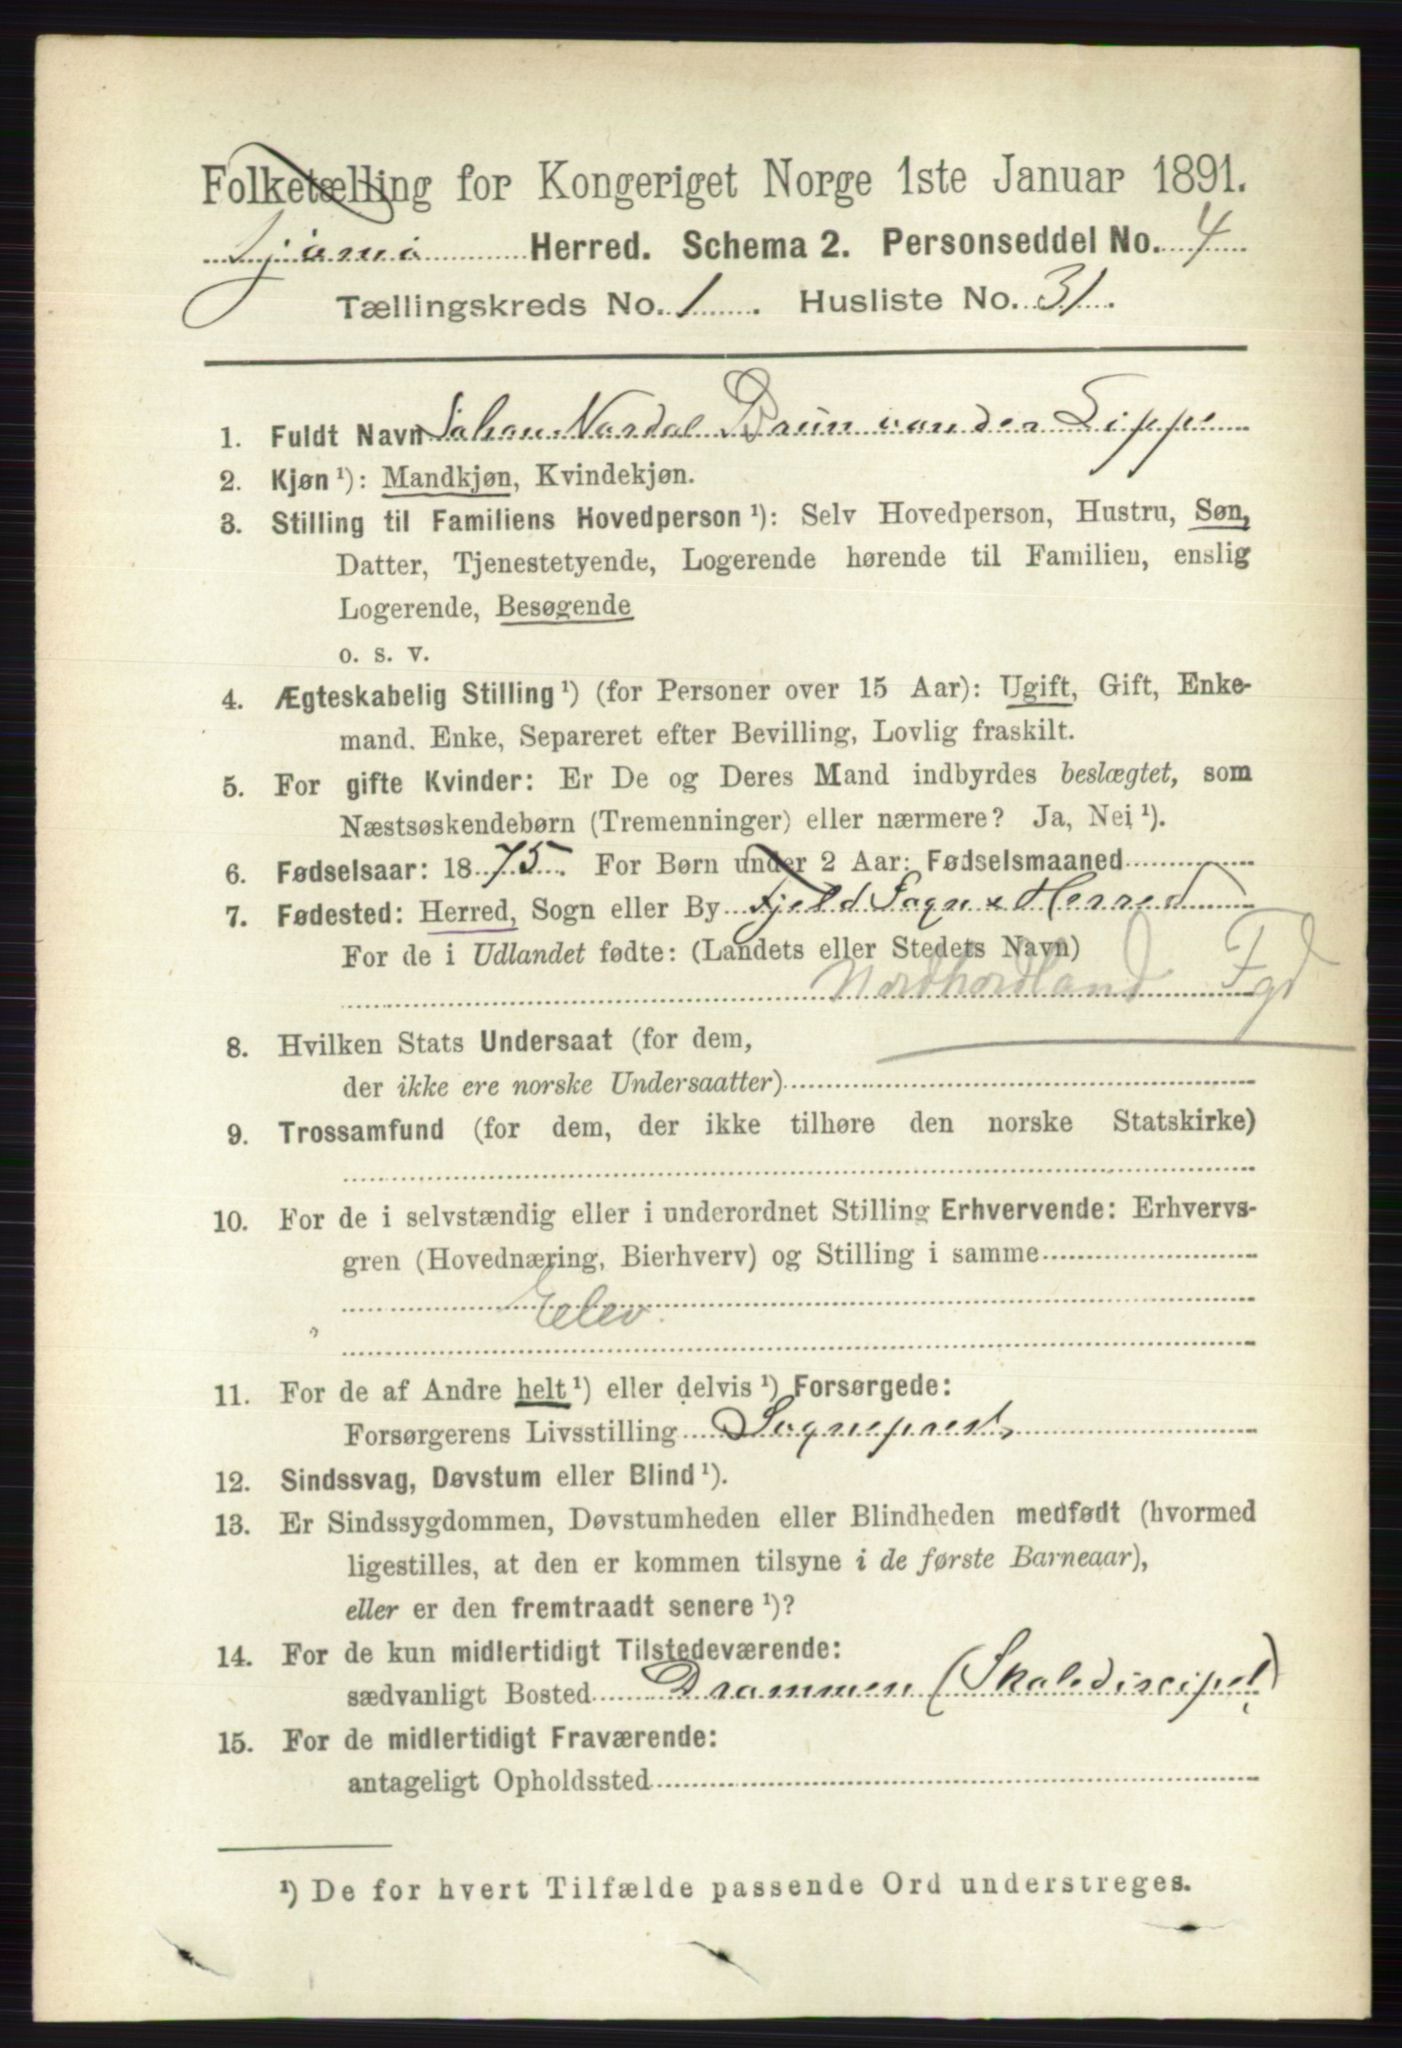 Folketælling for Kongeriget Norge 1ste Januar 1891.
Tjømø Herred. Schema 2. Personseddel No. 4
Tællingskreds No. 1. Husliste No. 31.
1. Fuldt Navn Johan Nordal Brun van der Lippe
2. Kjøn ¹): Mandkjøn, Kvindekjøn.
3. Stilling til Familiens Hovedperson ¹): Selv Hovedperson, Hustru, Søn,
Datter, Tjenestetyende, Logerende hørende til Familien, enslig
Logerende, Besøgende
o. s. v.
4. Ægteskabelig Stilling ¹) (for Personer over 15 Aar): Ugift, Gift, Enke-
mand. Enke, Separeret efter Bevilling, Lovlig fraskilt.
5. For gifte Kvinder: Er De og Deres Mand indbyrdes beslægtet, som
Næstsøskendebørn (Tremenninger) eller nærmere? Ja, Nei ¹).
6. Fødselsaar: 1875. For Børn under 2 Aar: Fødselsmaaned
7. Fødested: Herred, Sogn eller By Fjeld Sogn & Herred
For de i Udlandet fødte: (Landets eller Stedets Navn)
Nordhordland Fgd
8. Hvilken Stats Undersaat (for dem,
der ikke ere norske Undersaatter)
9. Trossamfund (for dem, der ikke tilhøre den norske Statskirke)
10. For de i selvstændig eller i underordnet Stilling Erhvervende: Erhvervs-
gren (Hovednæring, Bierhverv) og Stilling i samme
Elev.
11. For de af Andre helt ¹) eller delvis ¹) Forsørgede:
Forsørgerens Livsstilling Sogneprest,
12. Sindssvag, Døvstum eller Blind ¹).
13. Er Sindssygdommen, Døvstumheden eller Blindheden medfødt (hvormed
ligestilles, at den er kommen tilsyne i de første Barneaar),
eller er den fremtraadt senere ¹)?
14. For de kun midlertidigt Tilstedeværende:
sædvanligt Bosted Drammen (Skolediscipel)
15. For de midlertidigt Fraværende:
antageligt Opholdssted
¹) De for hvert Tilfælde passende Ord understreges.